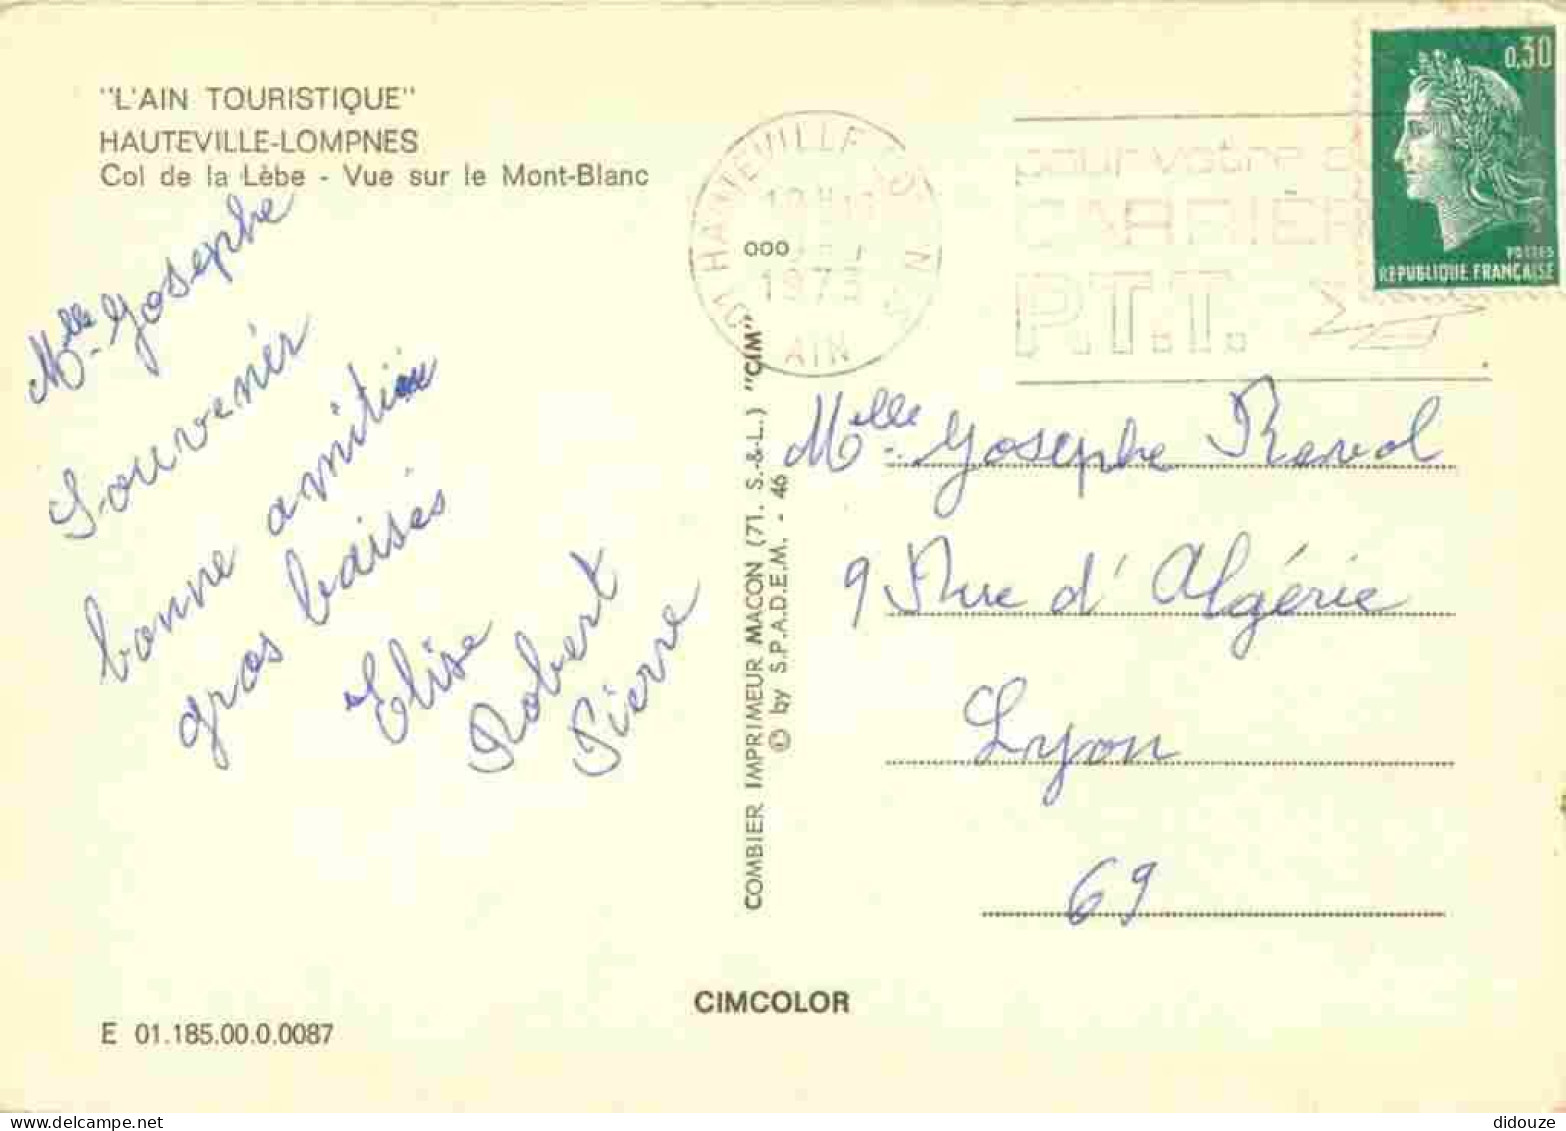 "L'AIN TOURISTIQUE"
HAUTEVILLE-LOMPNES
Col de la Lèbe - Vue sur le Mont-Blanc
Mlle Josephe
Souvenir
bonne amitié
gros baisés
Elise
Robert
Pierre
COMBIER IMPRIMEUR MACON (71. S.-&-L.) "CIM"
© by S.P.A.D.E.M. - 46
01 HAUTEVILLE
1973
AIN
ooo
pour votre
CARRIÈRE
P.T.T.
0,30
POSTES
REPUBLIQUE FRANCAISE
Mlle Josephe Revol
9 Rue d'Algérie
Lyon
69
CIMCOLOR
E 01.185.00.0.0087
didouze